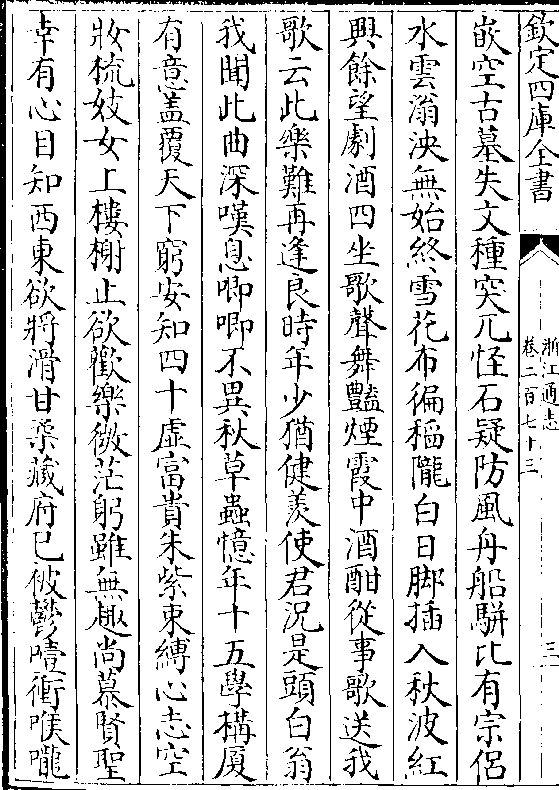 欽定四庫全書
浙江通志
卷二百七十三
三
嵌空古墓失文種突兀怪石疑防風舟船駢比有宗侣
水雲滃泱無始終雪花布徧稲隴白日脚插入秋波紅
興餘望劇酒四坐歌聲舞豔煙霞中酒酣從事歌送我
歌云此樂難再逢良時年少猶健羡使君況是頭白翁
我聞此曲深嘆息唧唧不異秋草蟲憶年十五學構厦
有意盖覆天下窮安知四十虚富貴朱紫束縛心志空
妝梳妓女上樓榭止欲歡樂微茫躬雖無趣尚慕賢聖
幸有心目知西東欲將滑甘柔藏府已被鬱噎衝喉嚨